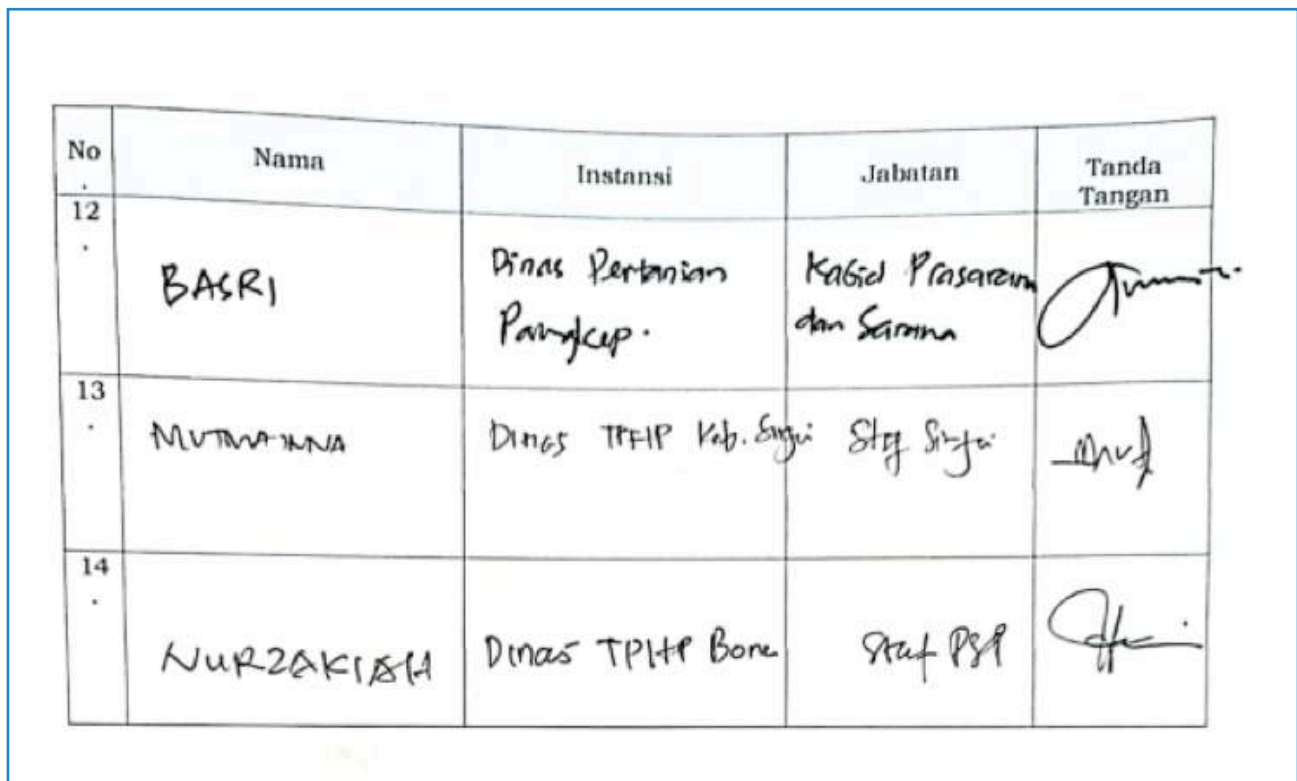 No. Nama Instansi Jabatan Tanda Tangan
12. BASRI Dinas Pertanian Pangkep. Kabid Prasarana dan Sarana
13. MUTMAINNA Dinas TPHP Kab. Sinjai Staf Sinjai
14. NURZAKIAH Dinas TPHP Bone Staf PSP